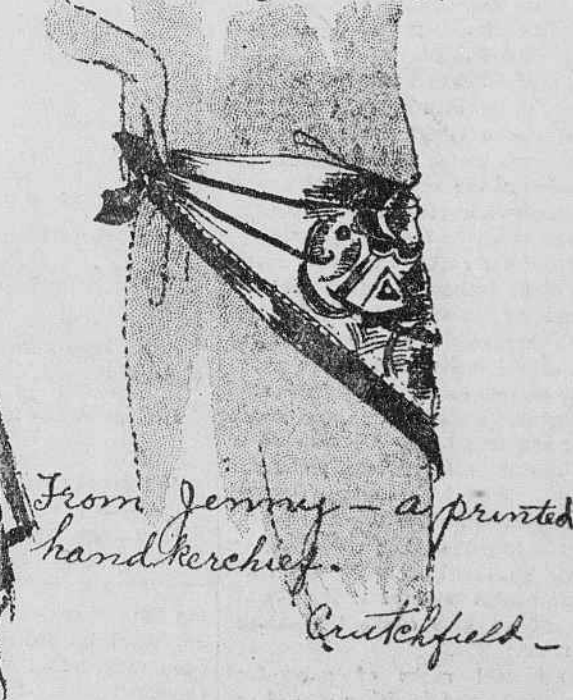 From Jenny — a printed
handkerchief.
Crutchfield —